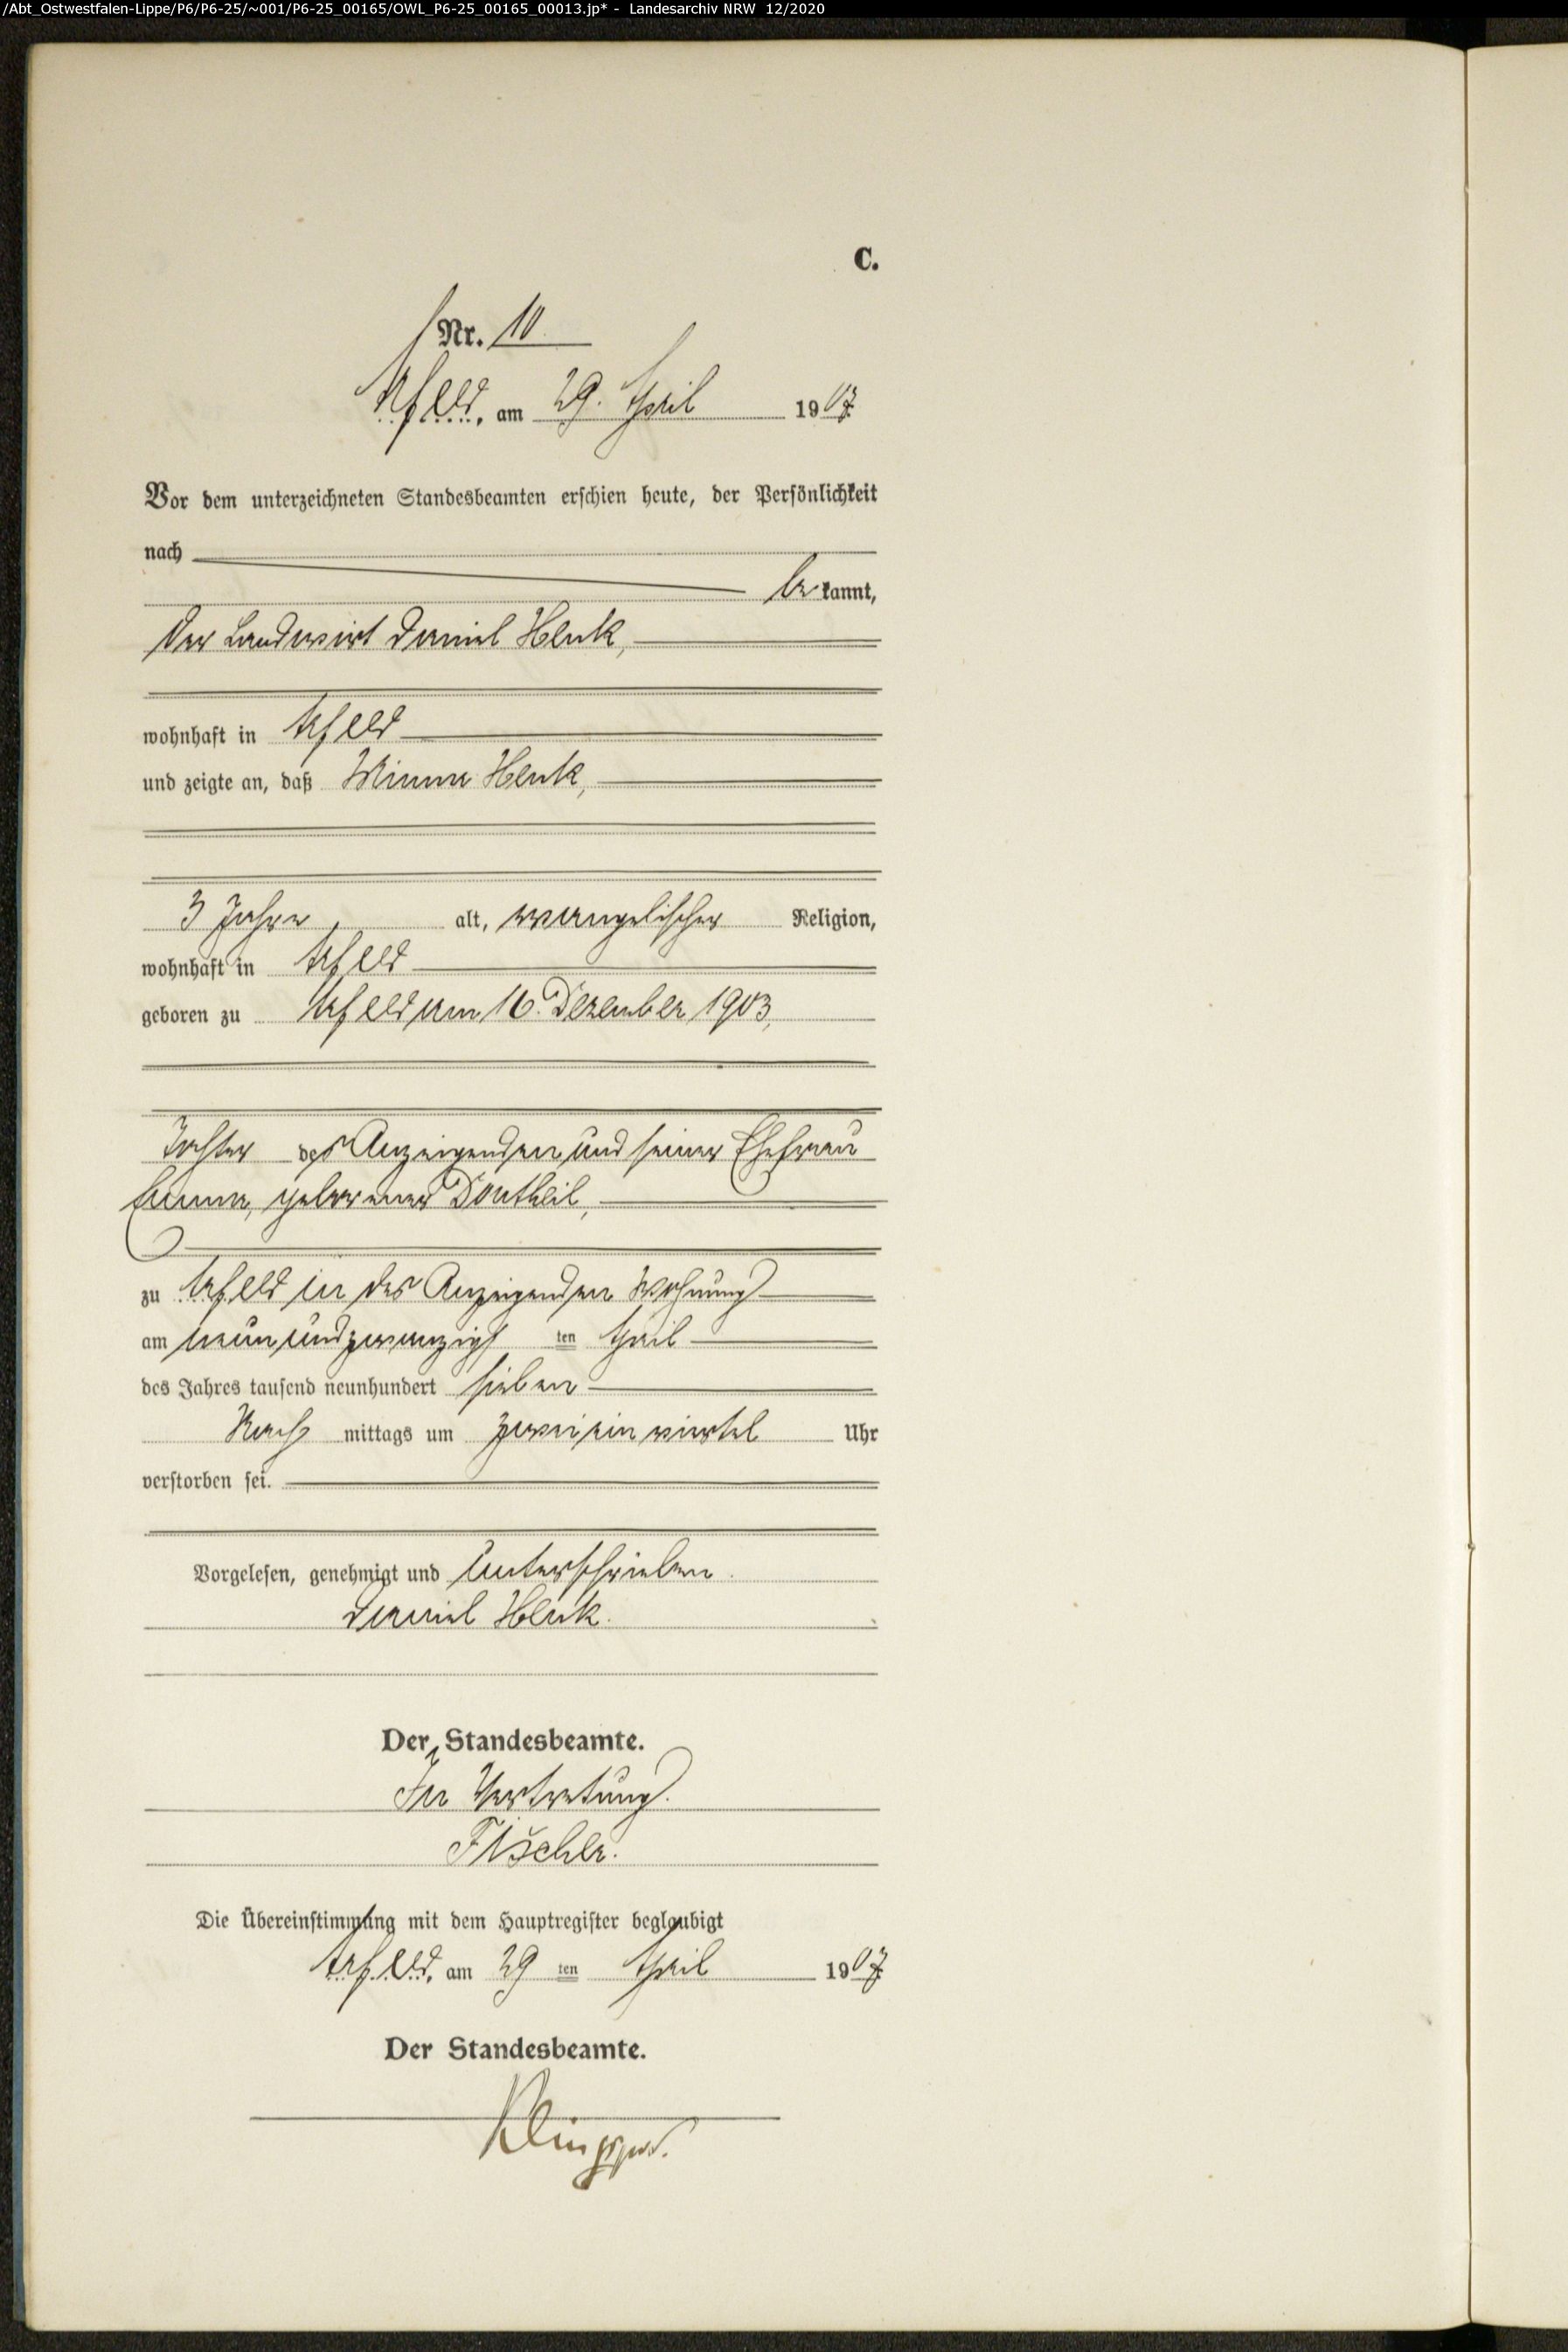 /Abt_Ostwestfalen-Lippe/P6/P6-25/~001/P6-25_00165/OWL_P6-25_00165_00013.jp* - Landesarchiv NRW 12/2020
C.
Nr. 10
Arfeld, am 29. April 1907
Vor dem unterzeichneten Standesbeamten erschien heute, der Persönlichkeit
nach
bekannt,
Der Landwirt Daniel Henk,
wohnhaft in Arfeld
und zeigte an, daß Minna Henk,
3 Jahre alt, evangelischer Religion,
wohnhaft in Arfeld
geboren zu Arfeld am 16. Dezember 1903,
Tochter des Anzeigenden und seiner Ehefrau
geborener Dontheil,
zu Arfeld in des Anzeigenden Wohnung
am neunundzwanzigsten April
des Jahres tausend neunhundert sieben
Nachmittags um zwei ein viertel Uhr
verstorben sei.
Vorgelesen, genehmigt und unterschrieben.
Daniel Henk.
Der Standesbeamte.
In Vertretung.
Fischer.
Die Übereinstimmung mit dem Hauptregister beglaubigt
Arfeld, am 29 ten April 1907
Der Standesbeamte.